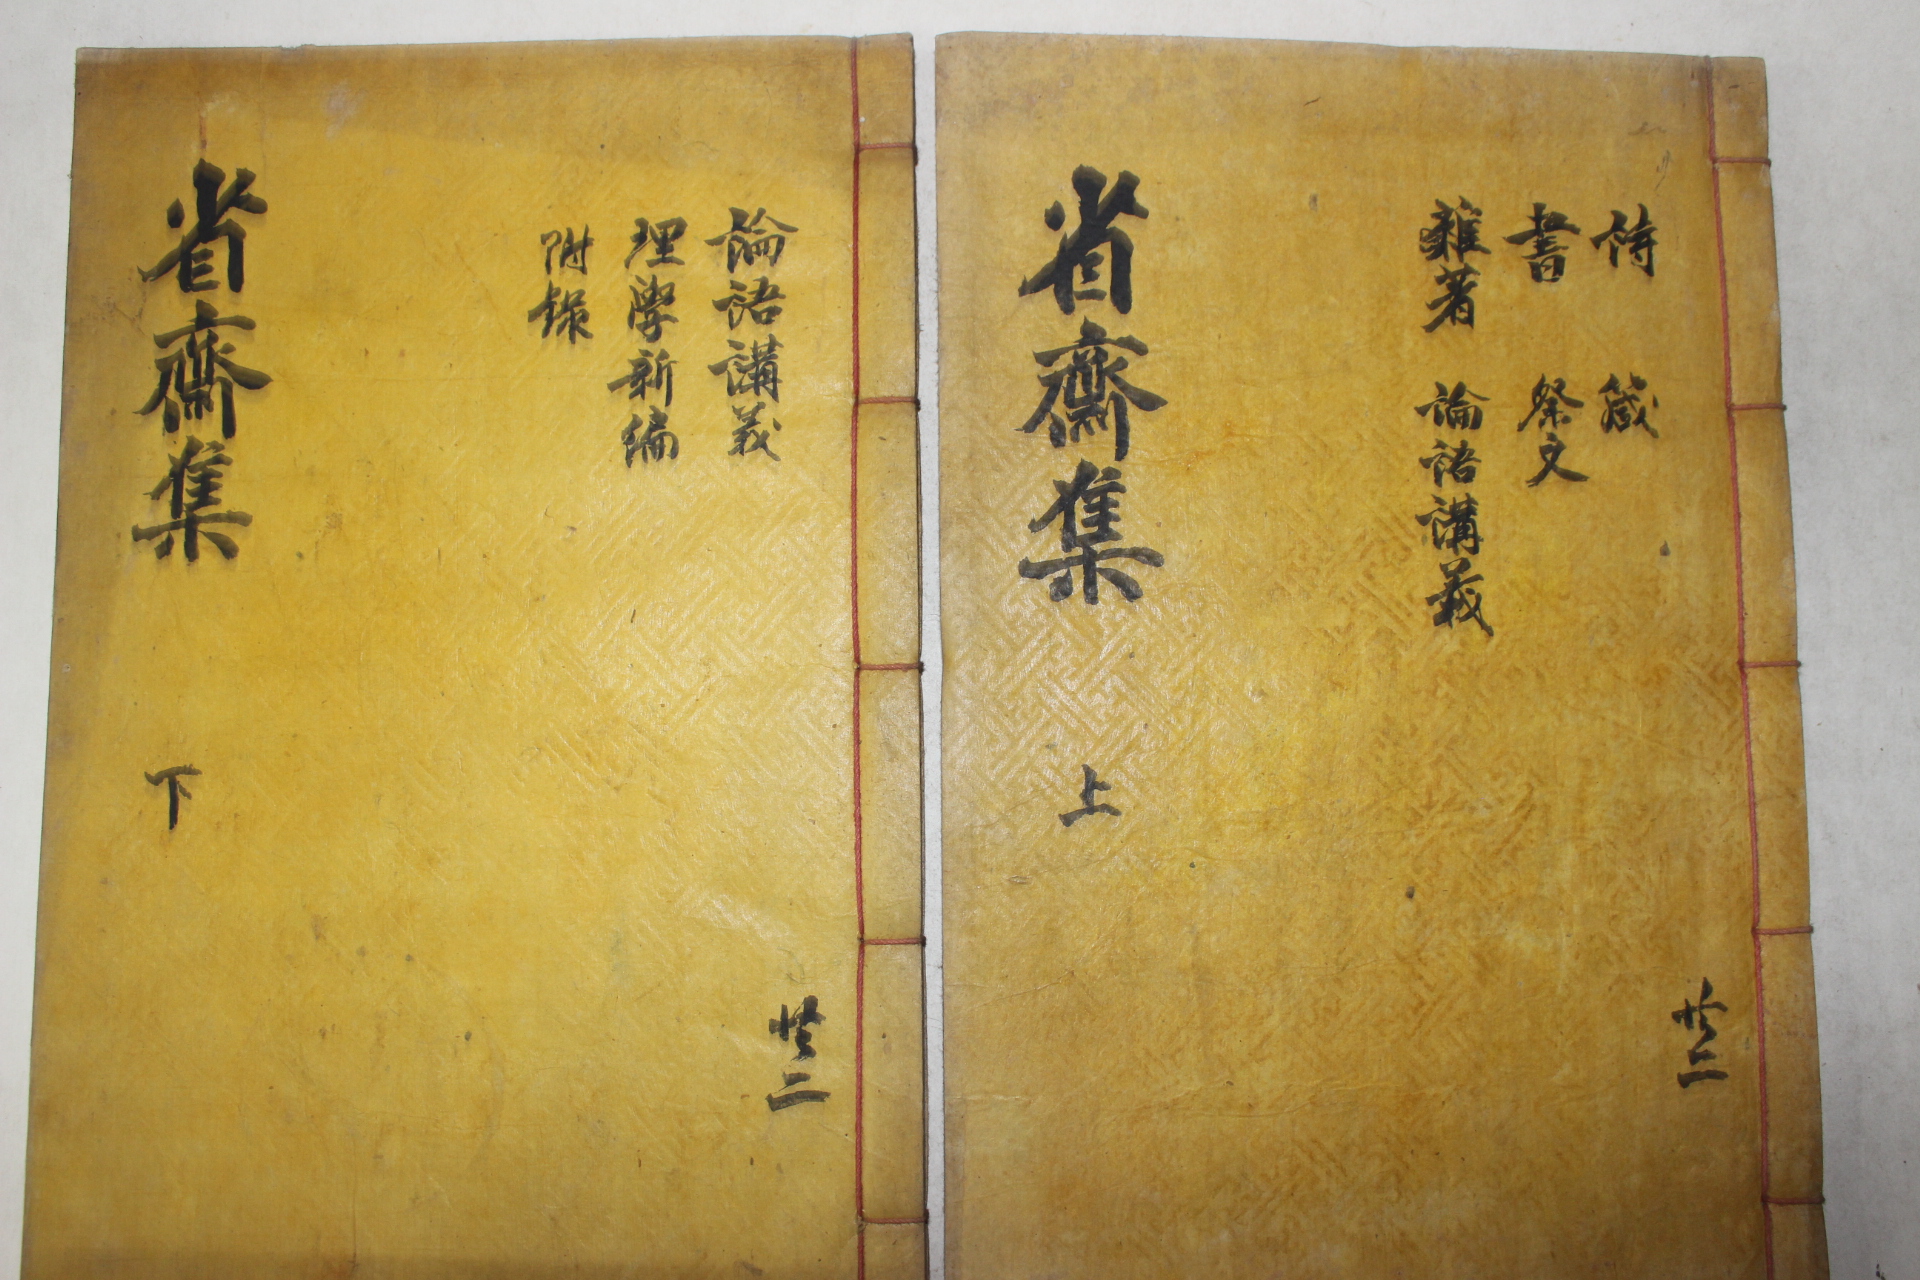 詩 箴
書 祭文
雜著 論語講義
省齋集 上
共二
論語講義
理學新編
附錄
省齋集 下
共二